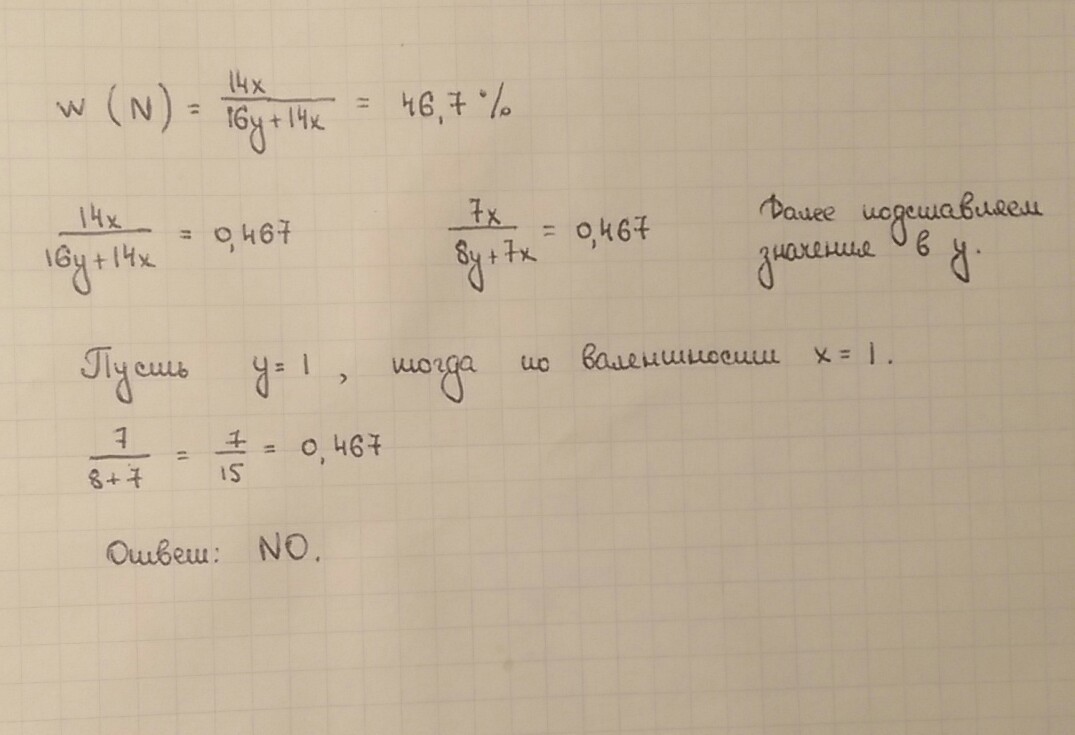 w (N) = 14x / (16y + 14x) = 46,7 %
14x / (16y + 14x) = 0,467    7x / (8y + 7x) = 0,467    Далее подставляем
значения в y.
Пусть y = 1, тогда по валентности x = 1.
7 / (8 + 7) = 7 / 15 = 0,467
Ответ: NO.